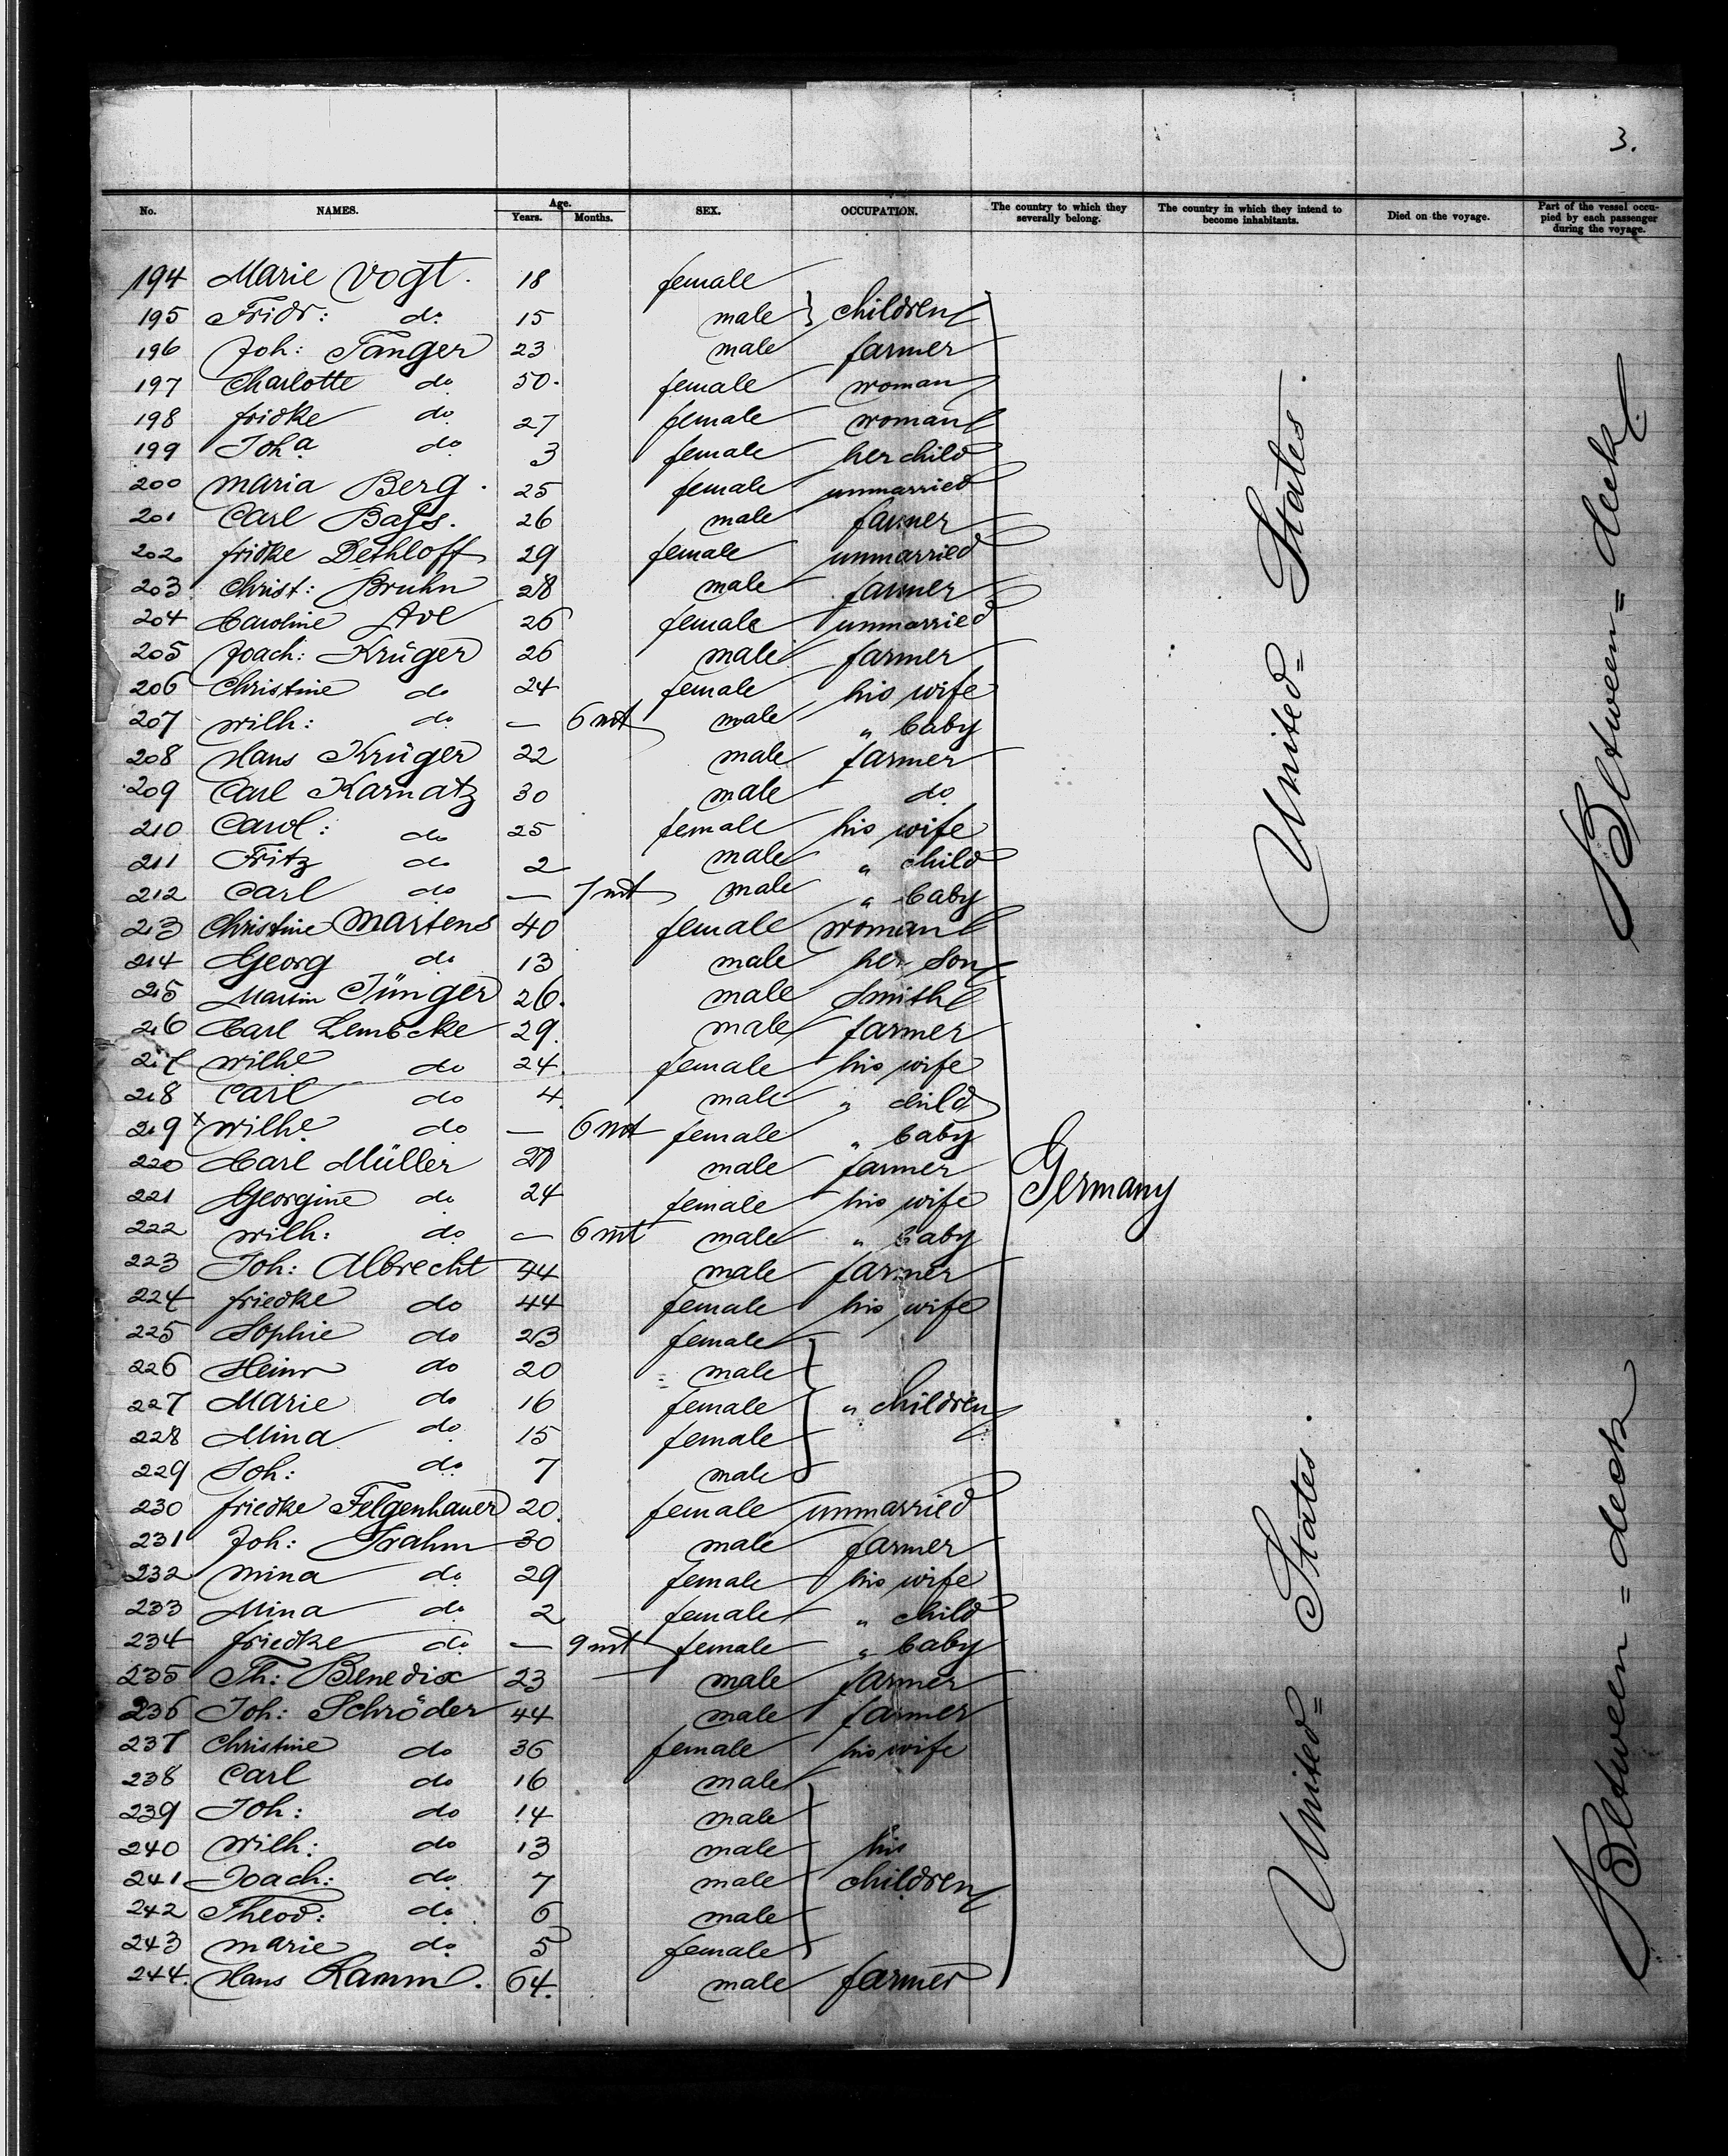 3.
No. NAMES. Age. Years. Months. SEX. OCCUPATION. The country to which they severally belong. The country in which they intend to become inhabitants. Died on the voyage. Part of the vessel occupied by each passenger during the voyage.
194 Marie Vogt. 18 female
195 Fridr: do 15 male } children
196 Joh: Tanger 23 male farmer
197 Charlotte do 50. female woman
198 fridke do 27 female woman
199 Joha do 3 female her child
200 Maria Berg. 25 female unmarried
201 Carl Bass. 26 male farmer
202 fridke Dethloff 29 female unmarried
203 Christ: Bruhn 28 male farmer
204 Caroline Ave 26 female unmarried
205 Joach: Krüger 26 male farmer
206 Christine do 24 female his wife
207 Wilh: do — 6 mt male " baby
208 Hans Krüger 22 male farmer
209 Carl Karnatz 30 male do
210 Carol: do 25 female his wife
211 Fritz do 2 male " child
212 Carl do — 7 mt male " baby
213 Christine Martens 40 female woman
214 Georg do 13 male her son
215 Martin Jünger 26. male Smith
216 Carl Lembcke 29. male farmer
217 Wilhe do 24. female his wife
218 Carl do 4. male " child
219 x Wilhe do — 6 mt female " baby
220 Carl Müller 27 male farmer
221 Georgine do 24 female his wife
222 Wilh: do — 6 mt male " baby
223 Joh: Albrecht 44 male farmer
224 friedke do 44 female his wife
225 Sophie do 23 female
226 Heinr do 20 male
227 Marie do 16 female " children
228 Mina do 15 female
229 Joh: do 7 male
230 friedke Felgenhauer 20. female unmarried
231 Joh: Frahm 30 male farmer
232 Mina do 29 female his wife
233 Mina do 2 female " child
234 friedke do — 9 mt female " baby
235 Th: Benedix 23 male farmer
236 Joh: Schröder 44 male farmer
237 Christine do 36 female his wife
238 Carl do 16 male
239 Joh: do 14 male
240 Wilh: do 13 male his
241 Joach: do 7 male children
242 Theod: do 6 male
243 Marie do 5 female
244. Hans Ramm. 64. male farmer
Germany
United= States.
United= States.
Between= deck.
Between= deck